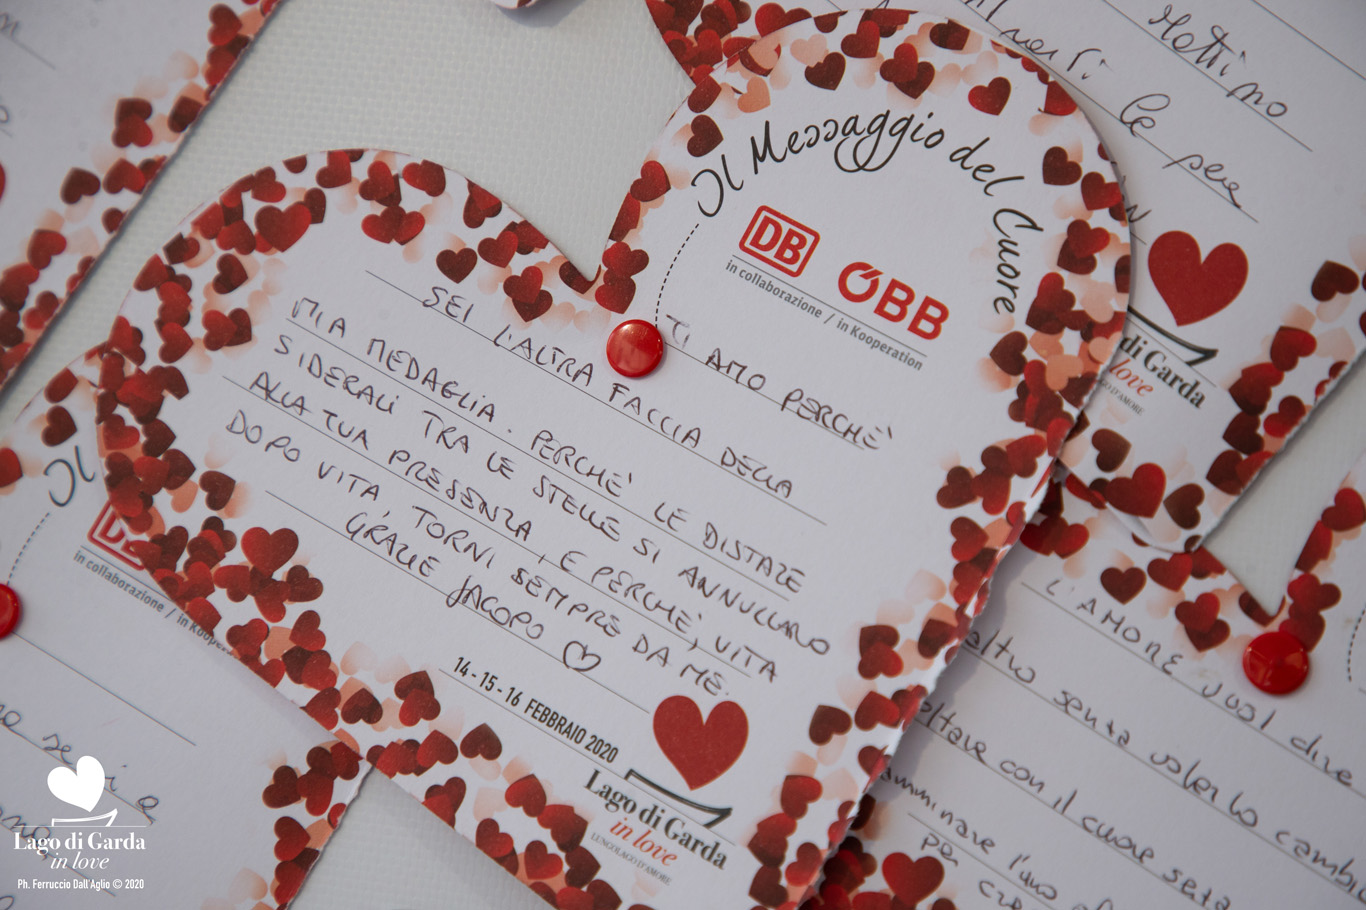 Il Messaggio del Cuore
DB ÖBB
in collaborazione / in Kooperation
TI AMO PERCHÈ
SEI L'ALTRA FACCIA DELLA
MIA MEDAGLIA. PERCHÈ LE DISTAZE
SIDERALI TRA LE STELLE SI ANNULLANO
ALLA TUA PRESENZA, E PERCHÈ, VITA
DOPO VITA, TORNI SEMPRE DA ME.
GRAZIE JACOPO
14-15-16 FEBBRAIO 2020
Lago di Garda
in love
LUNGOLAGO D'AMORE
Mattino
le
di Garda
love
Il
DB
in collaborazione / in Koope
L'AMORE VUOL dire
senza volerlo
con il cuore senza
per
Lago di Garda
in love
Ph. Ferruccio Dall'Aglio © 2020